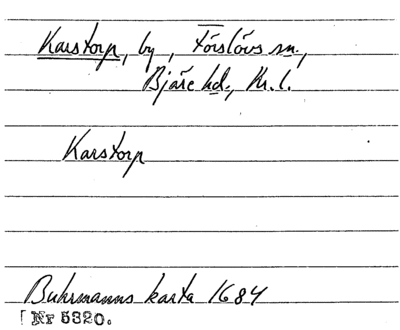 Karstorp, by, Förslövs sn.,
Bjäre hd., Kr. l.
Karstorp
Buhrmanns karta 1684
[Nr 5320.